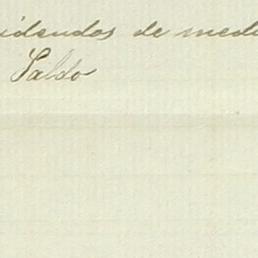 videndos de medi
Saldo